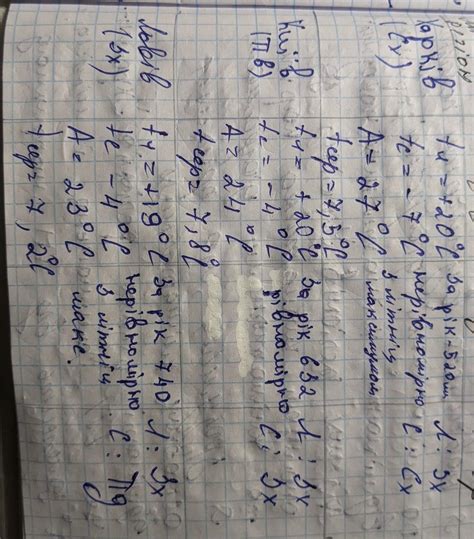 Харків tч = +20°C За рік-520мм Л: Зх
(Сх) tс = -7°C нерівномірно С: Сх
A = 27°C з літнім
максимумом
tсер = 7,5°C
Київ tч = +20°C За рік 632 Л: Зх
(Пв) tс = -4°C рівномірно С: Зх
A = 24°C
tсер = 7,8°C
Львів tч = +19°C За рік 740 Л: Зх
(Зх) tс -4°C нерівномірно С: Пд
A = 23°C з літнім
макс.
tсер = 7,2°C